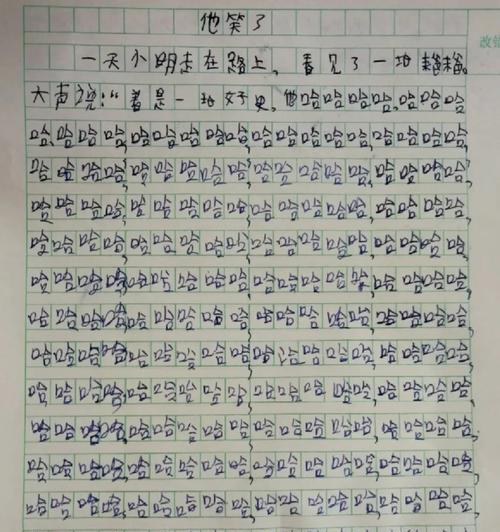 他笑了
一天小明走在路上,看见了一
大声说:“着是一坨好史,他哈哈哈哈,哈哈哈
哈,哈哈哈,哈哈哈哈哈,哈哈哈哈哈,哈哈哈哈,
哈哈哈哈,哈哈哈哈哈,哈哈哈哈哈,哈哈哈哈,
哈哈哈哈,哈哈哈哈哈,哈哈哈哈哈,哈哈哈哈,
哈哈哈哈,哈哈哈哈哈,哈哈哈哈哈,哈哈哈哈,
哈哈哈哈,哈哈哈哈哈,哈哈哈哈哈,哈哈哈哈,
哈哈哈哈,哈哈哈哈哈,哈哈哈哈哈,哈哈哈哈,
哈哈哈哈,哈哈哈哈哈,哈哈哈哈哈,哈哈哈哈,
哈哈哈哈,哈哈哈哈哈,哈哈哈哈哈,哈哈哈哈,
哈哈哈哈,哈哈哈哈哈,哈哈哈哈哈,哈哈哈哈,
哈哈哈哈,哈哈哈哈哈,哈哈哈哈哈,哈哈哈哈,
哈哈哈哈,哈哈哈哈哈,哈哈哈哈哈,哈哈哈哈,
改